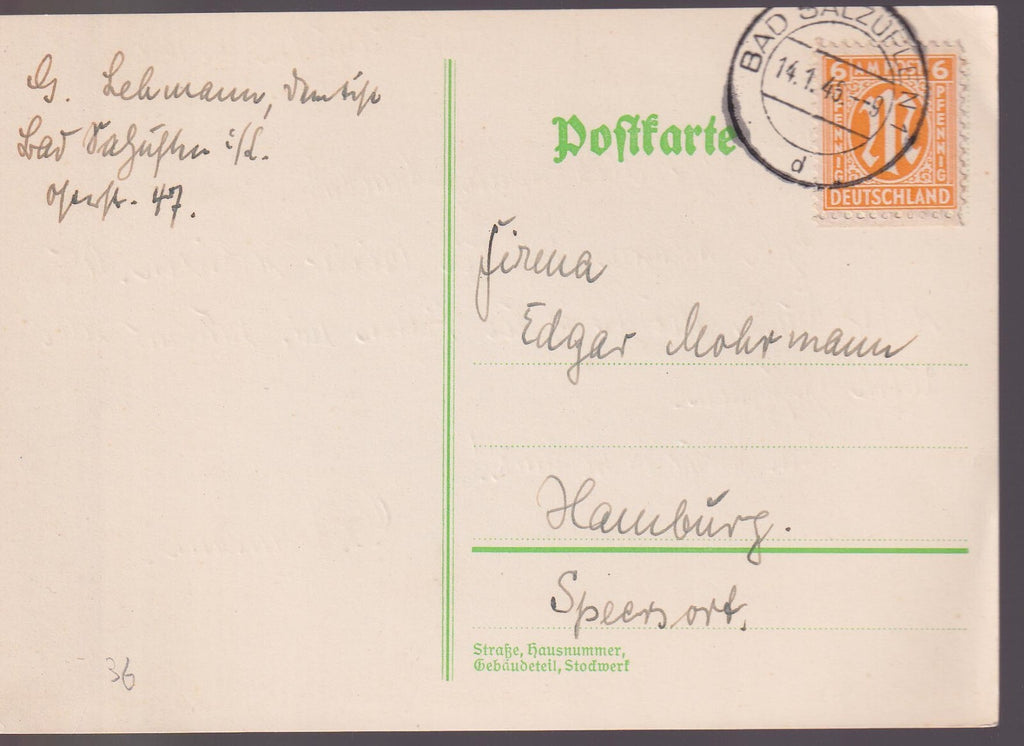 G. Lehmann,
Bad Salzuflen i/L.
47.
Postkarte
BAD SALZUFLEN 1
14.1.46.-9
d
6 AM POST 6
PFENNIG PFENNIG
DEUTSCHLAND
Firma
Edgar Mohrmann
Hamburg.
Speersort.
Straße, Hausnummer,
Gebäudeteil, Stockwerk
36